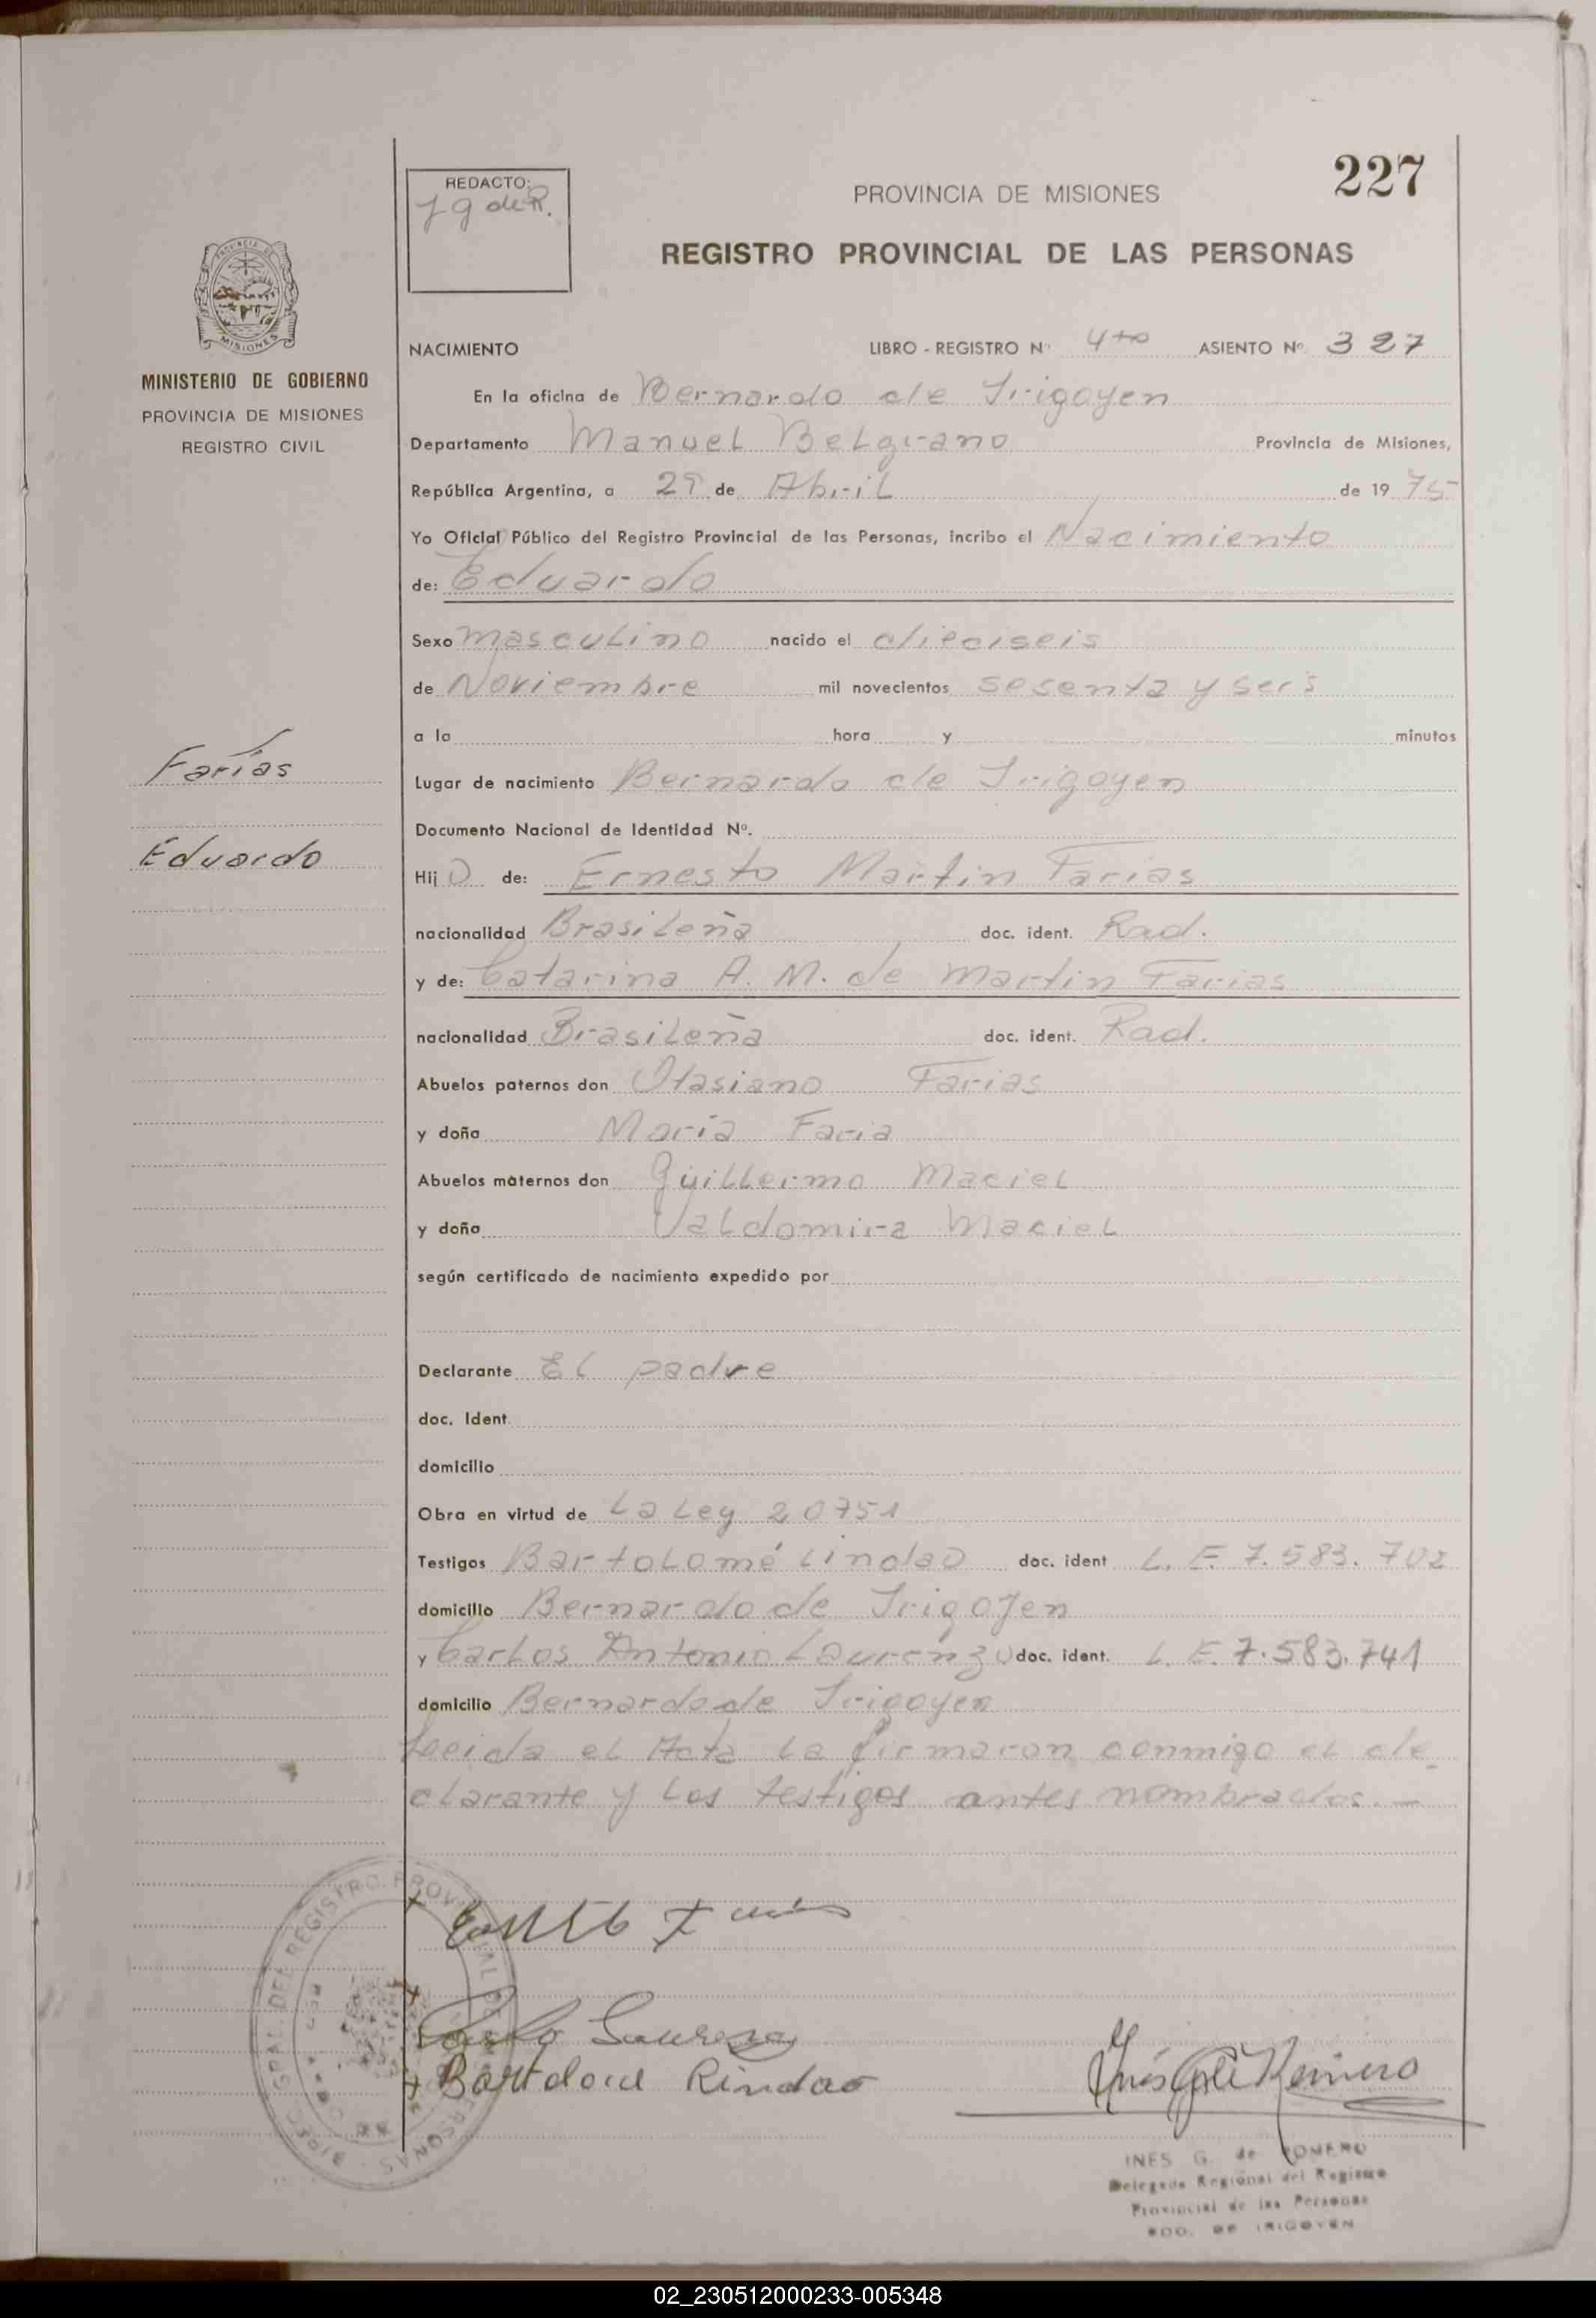 227
REDACTO:
PROVINCIA DE MISIONES
REGISTRO PROVINCIAL DE LAS PERSONAS
MISIONES
MINISTERIO DE GOBIERNO
PROVINCIA DE MISIONES
REGISTRO CIVIL
NACIMIENTO LIBRO - REGISTRO Nº 4to ASIENTO Nº 327
En la oficina de Bernardo de Irigoyen
Departamento Manuel Belgrano Provincia de Misiones,
República Argentina, a 29 de Abril de 19 75
Yo Oficial Público del Registro Provincial de las Personas, incribo el Nacimiento
de: Eduardo
Sexo masculino nacido el dieciseis
de Noviembre mil novecientos sesenta y seis
a la hora y minutos
Farías
Lugar de nacimiento Bernardo de Irigoyen
Documento Nacional de Identidad Nº.
Eduardo
Hij o de: Ernesto Martin Farias
nacionalidad Brasileña doc. ident. Rad.
y de: Catarina A. M. de Martin Farias
nacionalidad Brasileña doc. ident. Rad.
Abuelos paternos don Otasiano Farias
y doña María Faria
Abuelos maternos don Guillermo Maciel
y doña Valdomira Maciel
según certificado de nacimiento expedido por
Declarante El padre
doc. Ident.
domicilio
Obra en virtud de La Ley 20751
Testigos Bartolomé Lindao doc. ident L. E. 7.583.702
domicilio Bernardo de Irigoyen
y Carlos Antonio Laurenzo doc. ident. L. E. 7.583.741
domicilio Bernardo de Irigoyen
Leida el Acta la firmaron conmigo el de
clarante y los testigos antes nombrados.-
Bartolome Rindao
INES G. de ROMERO
Delegada Regional del Registro
Provincial de las Personas
BDO. DE IRIGOYEN
02_230512000233-005348